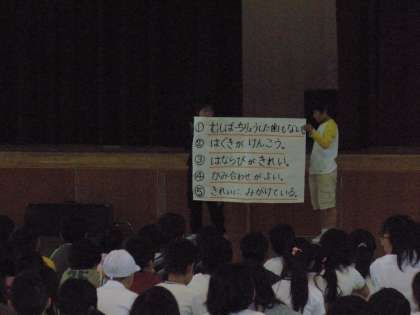 ① むしば・ちりょうした歯もない。
② はぐきが けんこう。
③ はならびが きれい。
④ かみ合わせが よい。
⑤ きれいに みがけている。